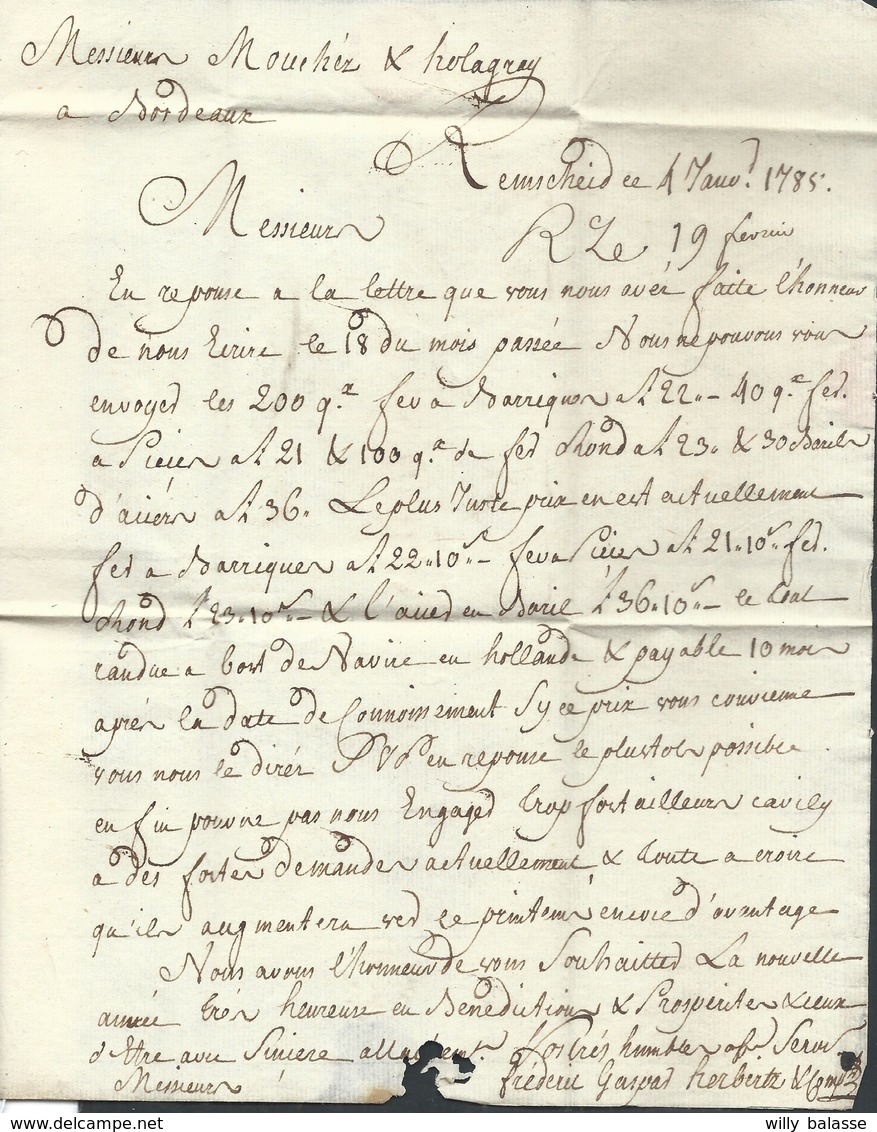 Messieurs Mouchéz & holagray
a Bordeaux
Remscheid ce 4 Janv.r 1785.
Messieurs
R Le 19 fevrier
En reponse a la lettre que vous nous avéz faitte l'honneur
de nous Ecrire le 18 du mois passée Nous ne pouvons vous
envoyer les 200 q.x fer a Barriques a £ 22.- 40 q.x fer.
a Pieces a £ 21 & 100 q.x de fer Rond a £ 23. & 30 Barils
d'aciers a £ 36. Le plus Juste prix en est actuellement
fer a Barriques a £ 22.10s- fer a Pieces a £ 21.10s fer.
Rond £ 23.10s- & l'acier en Baril £ 36.10s- le tout
randue a bort de Navire en hollande & payable 10 mois
aprés la date de Connoissement Sy ce prix vous convienne
vous nous le diréz en reponse le plustot possible
en fin pouvoir pas nous Engager trop fort ailleurs
a des fortes demandes actuellement & toute a croire
qu'ils augmentera ver le printems encore d'avantage
Nous avons l'honneur de vous Souhaitter La nouvelle
année trés heureuse en Benediction & Prosperites
d'Etre avec Sincere attachement. Vos trés humbles Serv.rs
Messieurs !
frédéric Gaspar herbertz & Comp.
willy balasse